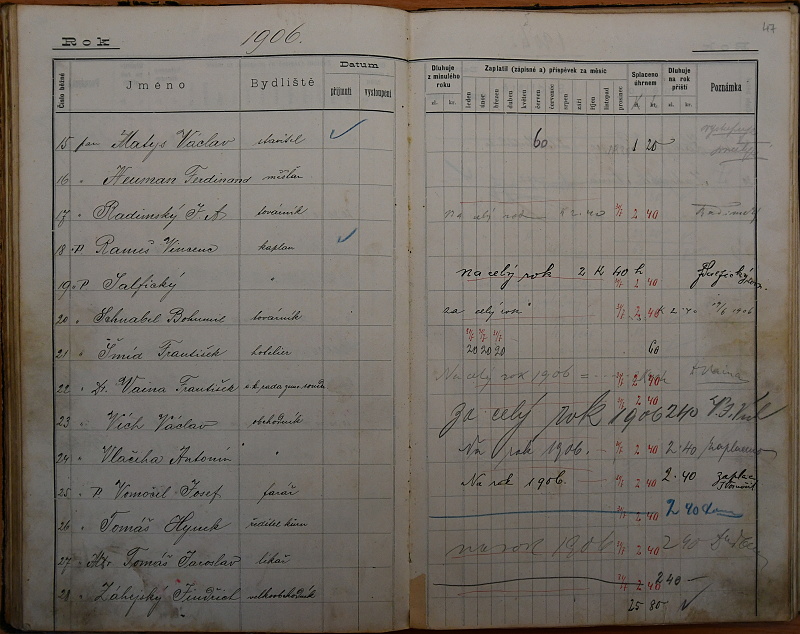 47
Rok 1906.
Číslo běžné
Jméno
Bydliště
Datum
přijmutí
vystoupení
Dluhuje z minulého roku
zl. kr.
Zaplatil (zápisné a) příspěvek za měsíc
leden únor březen duben květen červen červenec srpen září říjen listopad prosinec
Splaceno úhrnem
zl. kr.
Dluhuje na rok příští
zl. kr.
Poznámka
15 pan Matys Václav stavitel 60 1 20
16 " Neuman Ferdinand měšťan
17 " Radimský J. A. továrník na celý rok K 2.40 2 40
18 " P. Rameš Vincenc kaplan
19 " P. " na celý rok 2 K 40 h 2 40
20 " Schnabel Bohumil továrník za celý rok 2 40 K 2.40 19/6 1906
21 " Šmíd František hotelier 20 20 20 60
22 " Dr. Vaina František Na celý rok 1906 = 2 40 Dr Vaina
23 " Vích Václav obchodník za celý rok 1906 2 40 240
24 " Vlačiha Antonín " Na rok 1906. 2 40 2.40 zaplaceno
25 " P. Vomočil Josef farář Na rok 1906. 2 40 2.40
26 " Tomáš Hynek ředitel kůru 2 40 2 40
27 " MDr Tomáš Jaroslav lékář na rok 1906 2 40 2 40
28 " Záhejský Jindřich velkoobchodník 2 40 2 40 —
25 80